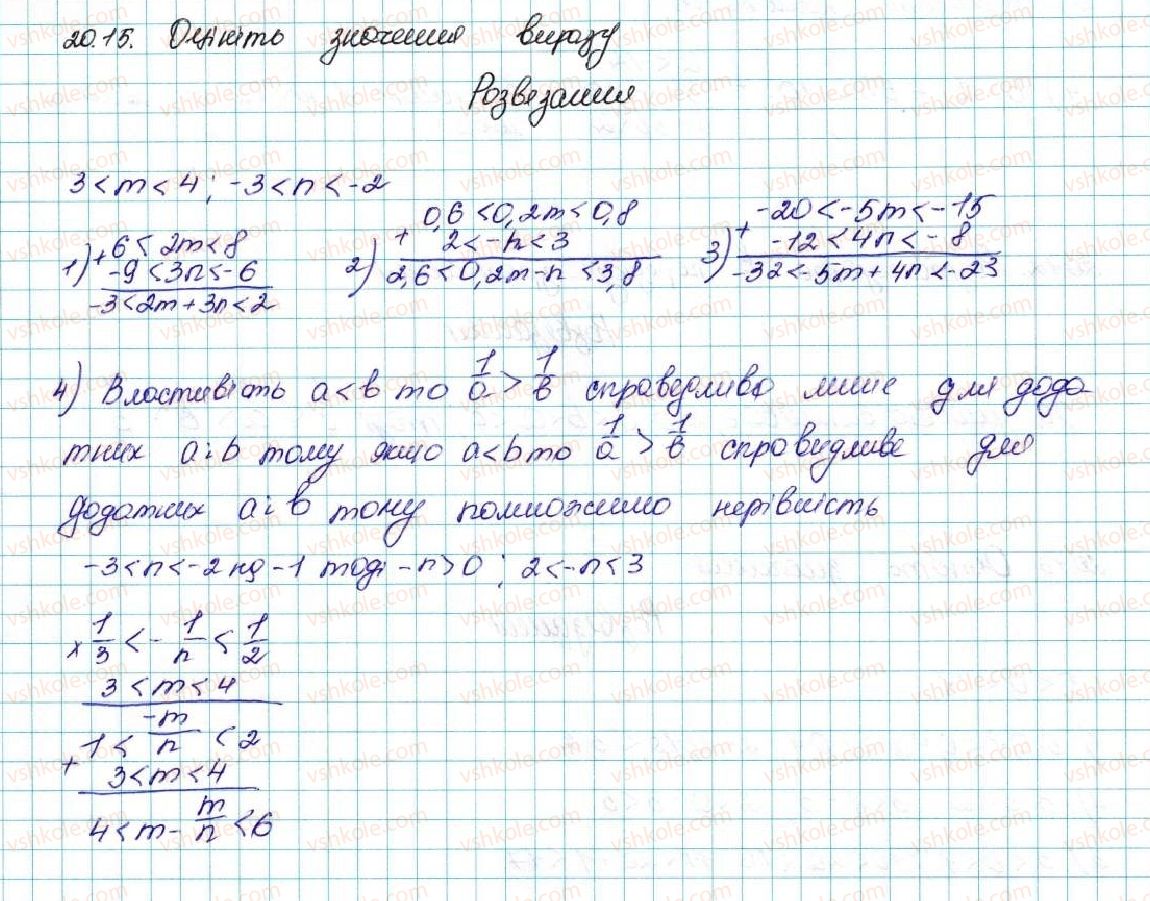 20.15. Оцініть значення виразу
Розвезання
3 < m < 4 ; -3 < n < -2
1) + 6 < 2m < 8
-9 < 3n < -6
-3 < 2m + 3n < 2
2) + 0,6 < 0,2m < 0,8
2 < -n < 3
2,6 < 0,2m - n < 3,8
3) + -20 < -5m < -15
-12 < 4n < -8
-32 < -5m + 4n < -23
4) Властивість a < b то 1/a > 1/b справедливо лише для дода
тних a і b тому якщо a < b то 1/a > 1/b справидливе для
додатних a і b тому помножимо нерівність
-3 < n < -2 на -1 тоді -n > 0 ; 2 < -n < 3
× 1/3 < -1/n < 1/2
3 < m < 4
1 < -m/n < 2
+ 3 < m < 4
4 < m - m/n < 6